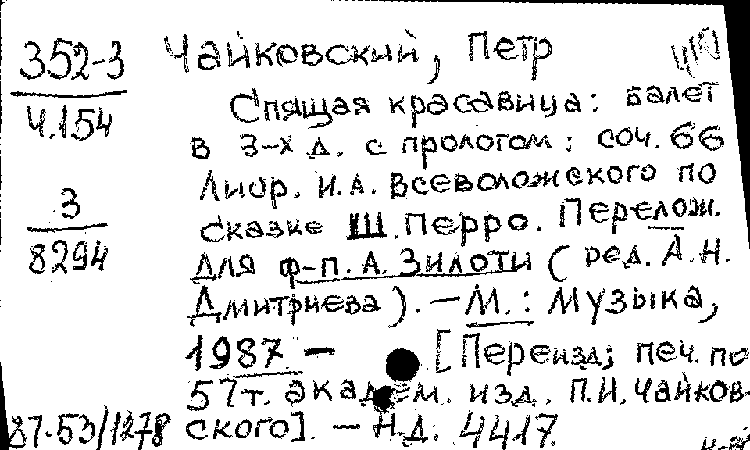 352-3
Ч.154
3
8294
Чайковский, Петр
Спящая красавица: балет
в 3-х д. с прологом: соч. 66
Либр. И.А. Всеволожского по
сказке Ш. Перро. Перелож.
для ф-п. А. Зилоти (ред. А.Н.
Дмитриева). — М.: Музыка,
1987 — [Переизд; печ. по
57т. академ. изд. П.И. Чайков-
ского]. — Н.Д. 4417.
87-53/1278